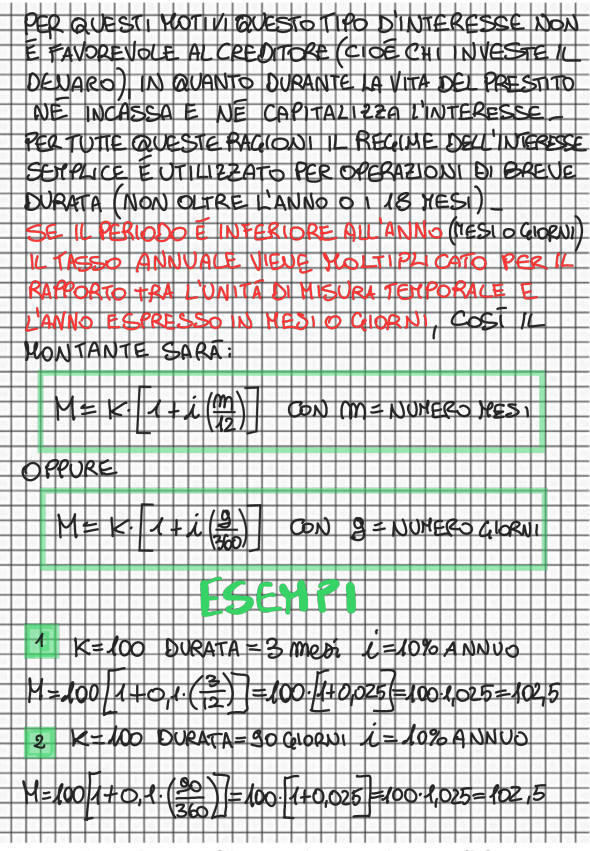 PER QUESTI MOTIVI QUESTO TIPO D'INTERESSE NON
È FAVOREVOLE AL CREDITORE (CIOÈ CHI INVESTE IL
DENARO), IN QUANTO DURANTE LA VITA DEL PRESTITO
NÈ INCASSA E NÈ CAPITALIZZA L'INTERESSE_
PER TUTTE QUESTE RAGIONI IL REGIME DELL'INTERESSE
SEMPLICE È UTILIZZATO PER OPERAZIONI DI BREVE
DURATA (NON OLTRE L'ANNO O I 18 MESI)_
SE IL PERIODO È INFERIORE ALL'ANNO (MESI O GIORNI)
IL TASSO ANNUALE VIENE MOLTIPLICATO PER IL
RAPPORTO TRA L'UNITÀ DI MISURA TEMPORALE E
L'ANNO ESPRESSO IN MESI O GIORNI, COSÌ IL
MONTANTE SARÀ:
M = K·[1+i(m/12)] CON m = NUMERO MESI
OPPURE
M = K·[1+i(g/360)] CON g = NUMERO GIORNI
ESEMPI
1 K=100 DURATA = 3 mesi i=10% ANNUO
M=100[1+0,1·(3/12)]=100·[1+0,025]=100·1,025=102,5
2 K=100 DURATA=90 GIORNI i=10% ANNUO
M=100[1+0,1·(90/360)]=100·[1+0,025]=100·1,025=102,5